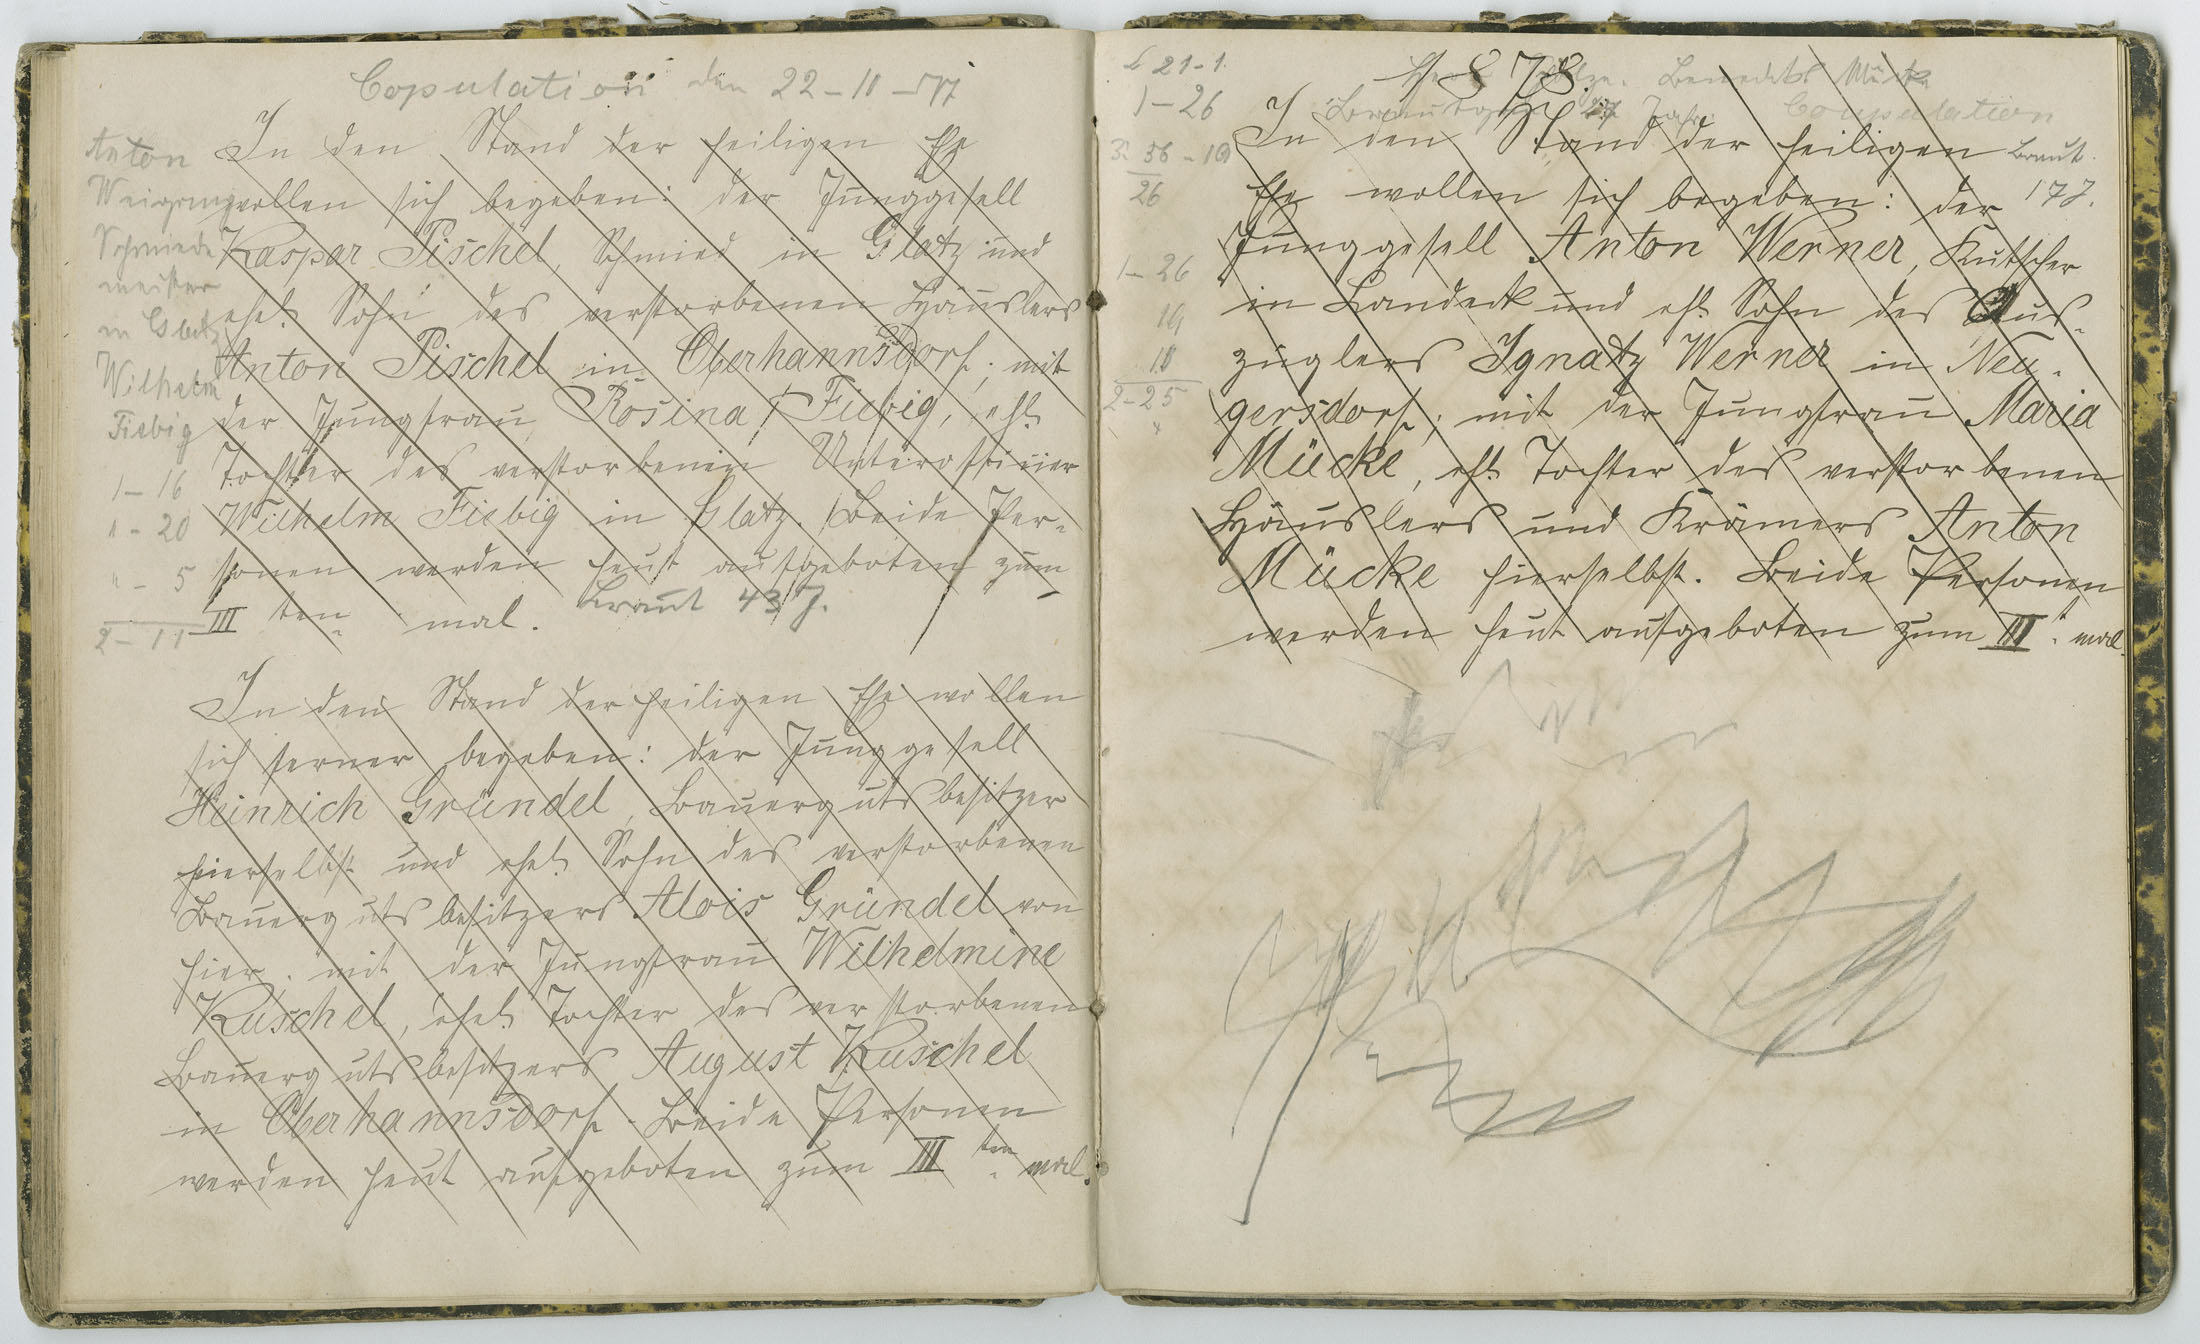 Copulation den 22-11-
Anton
Weigang
Schmiede
meister
in Glatz
Wilhelm
Fiebig
1-16
1-20
"-5
2-11
In den Stand der heiligen Ehe
wollen sich begeben: der Junggesell
Kaspar Pischel, Schmied in Glatz und
ehel. Sohn des verstorbenen Häuslers
Anton Pischel in Oberhannsdorf; mit
der Jungfrau Rosina Fiebig, ehl.
Tochter des verstorbenen Unteroffizier
Wilhelm Fiebig in Glatz. Beide Per-
sonen werden heut aufgeboten zum
III ten mal. Braut 43 J.
In den Stand der heiligen Ehe wollen
sich ferner begeben: der Junggesell
Heinrich Gründel, Bauergutsbesitzer
hierselbst und ehel. Sohn des verstorbenen
Bauergutsbesitzers Alois Gründel von
hier; mit der Jungfrau Wilhelmine
Kuschel, ehel. Tochter des verstorbenen
Bauergutsbesitzers August Kuschel
in Oberhannsdorf. Beide Personen
werden heut aufgeboten zum III ten mal.
21-1.
1-26
56-19
26
1-26
19
18
2-25
1878.
Benedikt Mücke
Bräutigam 27 Jahr Copulation
Braut
17 J.
In den Stand der heiligen
Ehe wollen sich begeben: der
Junggesell Anton Werner, Kutscher
in Landeck und ehl. Sohn des Aus-
züglers Ignatz Werner in Neu-
gersdorf; mit der Jungfrau Maria
Mücke, ehl. Tochter des verstorbenen
Häuslers und Krämers Anton
Mücke hierselbst. Beide Personen
werden heut aufgeboten zum III t. mal.